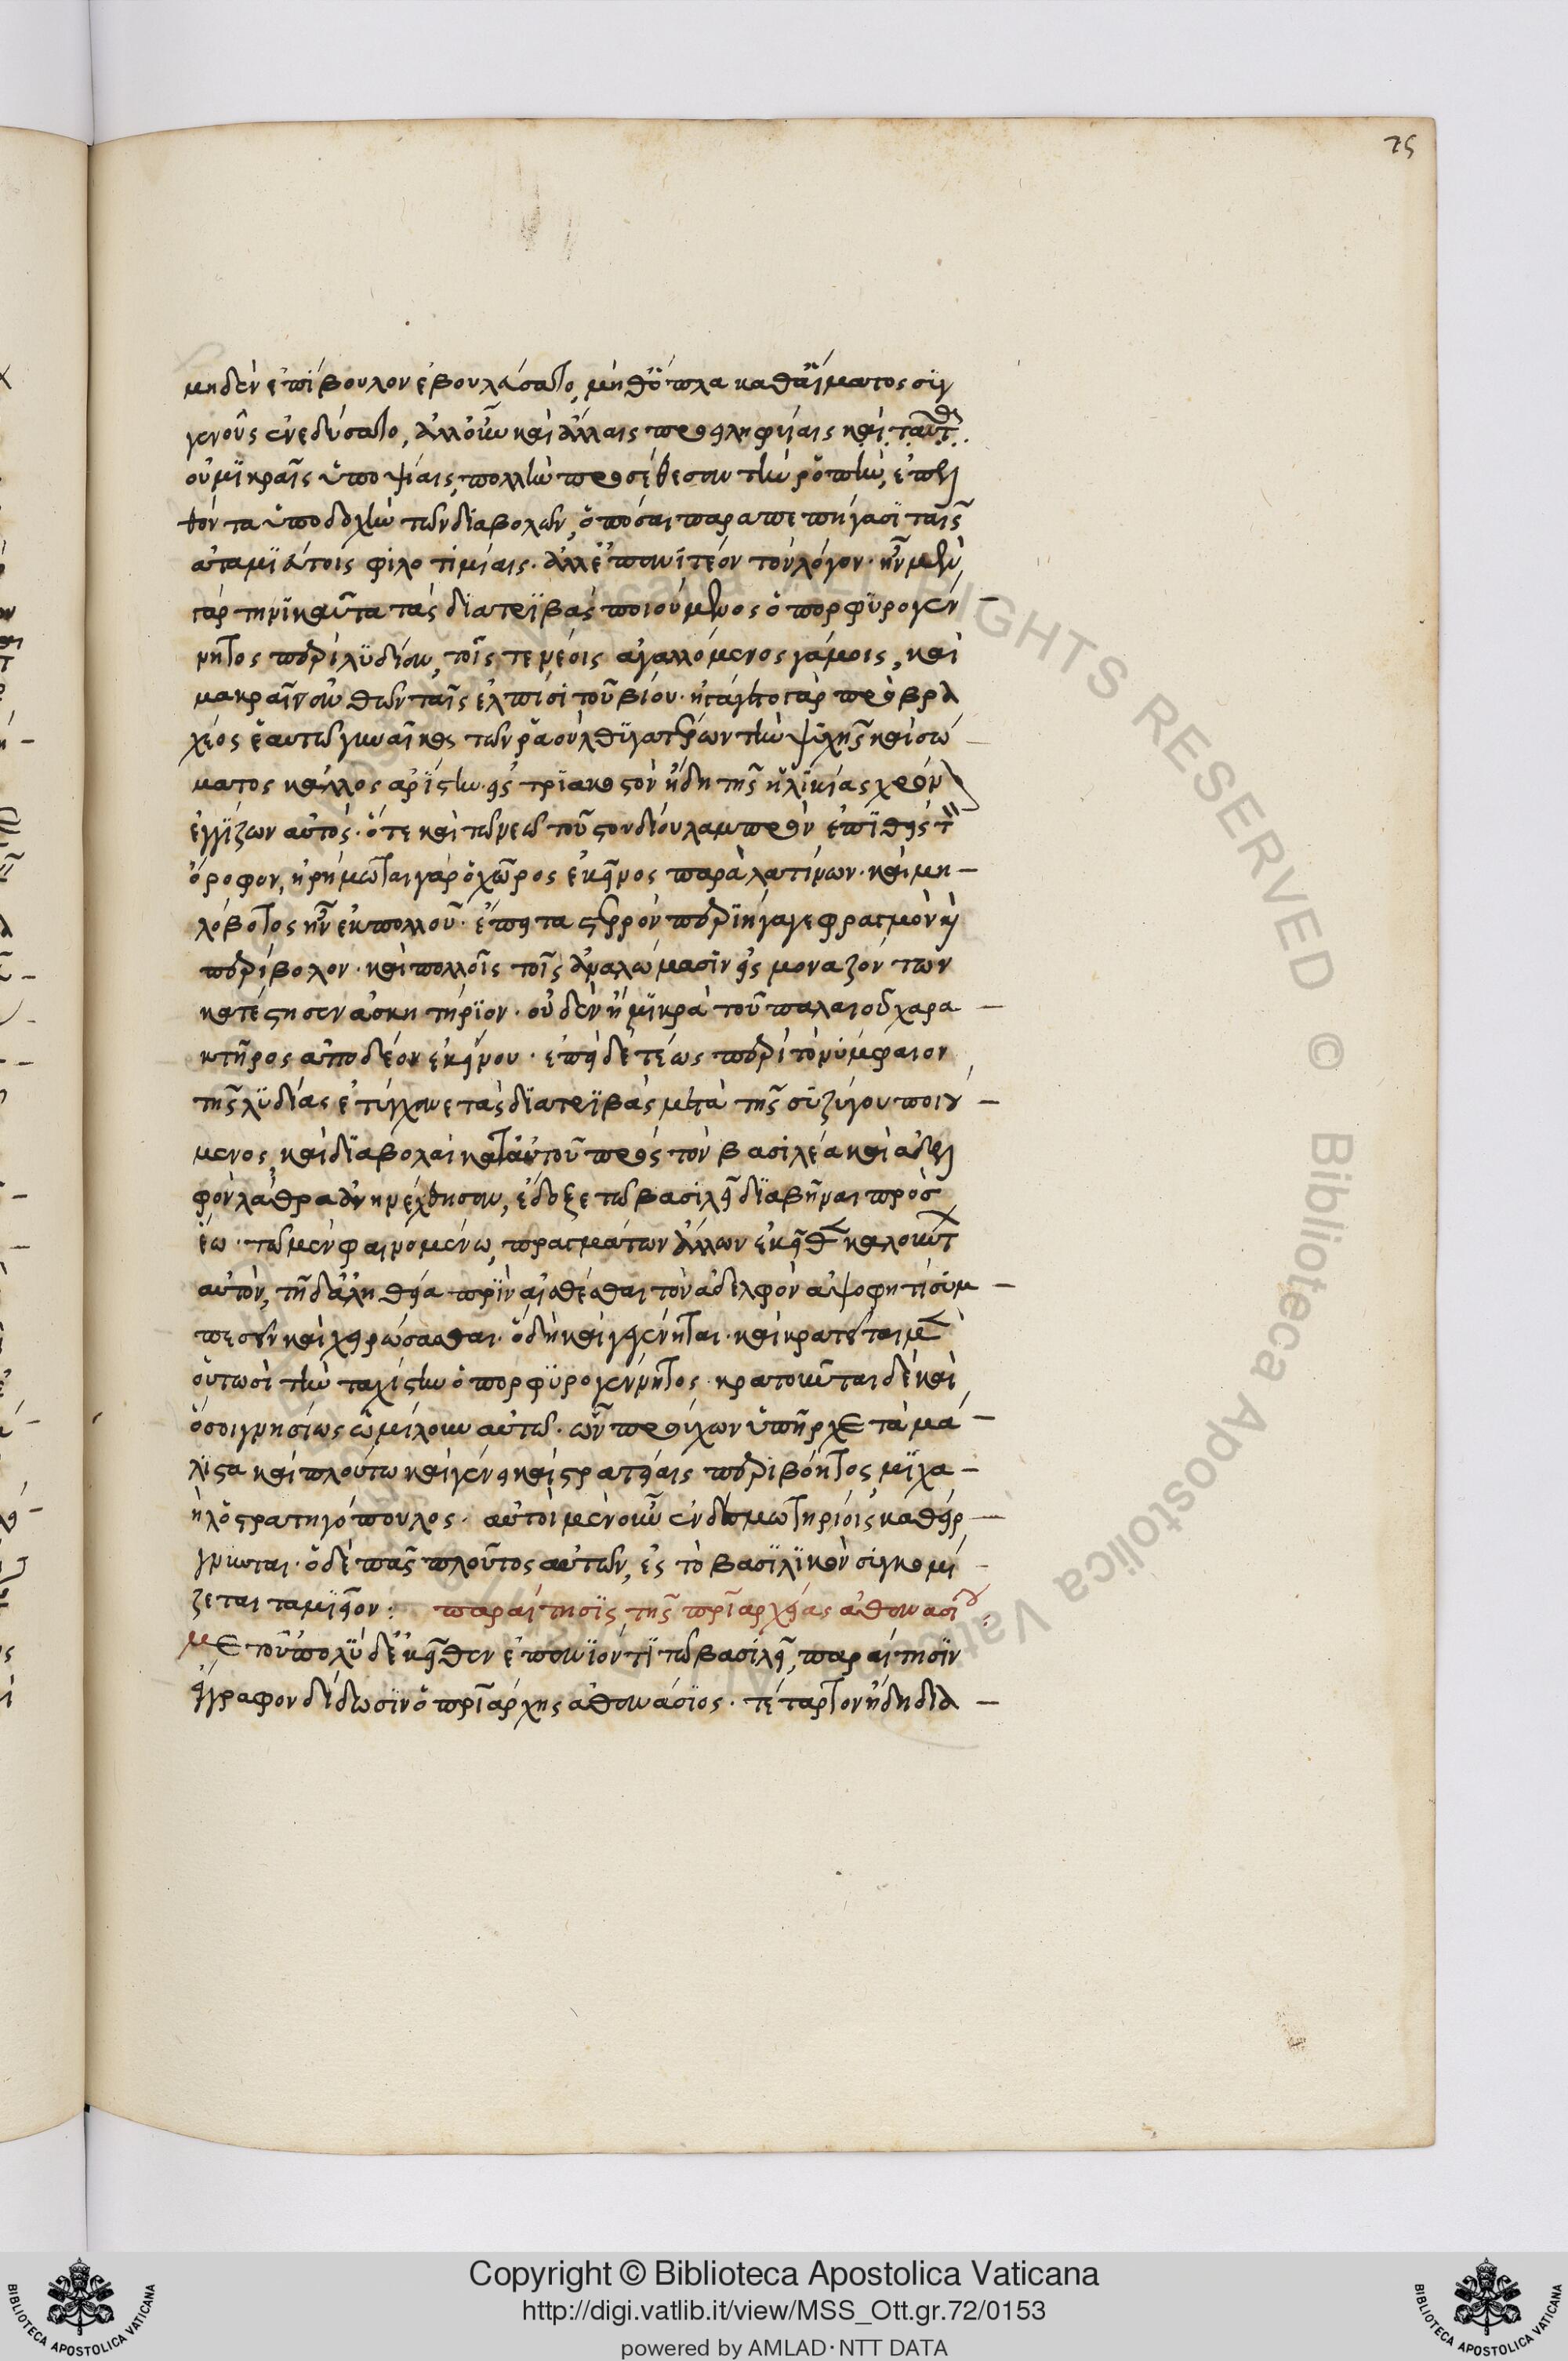 75
μηδὲν ἐπίβουλον ἐβουλεύσατο, μηθ' ὅπλα καθ' αἵματος συγ
γενοῦς ἐνεδύσατο, ἀλλ' οὖν καὶ ἄλλαις προσληφθείσαις καὶ ταύταις
οὐ μικραῖς ὑποψίαις, πολλὴν προσέθεσαν τὴν ῥοπὴν, ἐπελ
θόντα ὑποδοχὴν τῶν διαβολῶν, ὁπόσαι παραπεπήγασι ταῖς
ἀταμιεύτοις φιλοτιμίαις. ἀλλ' ἐπανιτέον τὸν λόγον. ἦν μὲν
γὰρ τηνικαῦτα τὰς διατριβὰς ποιούμενος ὁ πορφυρογέν
νητος περὶ λυδίαν, τοῖς τε νέοις ἀγαλλόμενος γάμοις, καὶ
μακραῖς συνθέων ταῖς ἐλπίσι τοῦ βίου. ἠγάγετο γὰρ πρὸ βρα
χέος ἑαυτῷ γυναῖκα τῶν ῥαοὺλ θυγατέρων τὴν ψυχῆς καὶ σώ
ματος κάλλος ἀρίστην. εἰς τριακοστὸν ἤδη τῆς ἡλικίας χρόνον
ἐγγίζων αὐτός. ὅτε καὶ τῷ νεῷ τοῦ στουδίου λαμπρὸν ἐπιθεὶς τὸν
ὄροφον, ἠρήμωται γὰρ ὁ χῶρος ἐκεῖνος παρὰ λατίνων. καὶ μη
λόβοτος ἦν ἐκ πολλοῦ. ἔπειτα στερρὸν περιήγαγε φραγμὸν καὶ
περίβολον. καὶ πολλοῖς τοῖς ἀναλώμασιν εἰς μοναζόντων
κατέστησεν ἀσκητήριον. οὐδὲν ἢ μικρὰ τοῦ παλαιοῦ χαρα
κτῆρος ἀποδέον ἐκείνου. ἐπεὶ δὲ τέως περὶ τὸ νύμφαιον
τῆς λυδίας ἐτύγχανε τὰς διατριβὰς μετὰ τῆς συζύγου ποιού
μενος, καὶ διαβολαὶ κατ' αὐτοῦ πρὸς τὸν βασιλέα καὶ ἀδελ
φὸν λάθρα ἀνηνέχθησαν, ἔδοξε τῷ βασιλεῖ διαβῆναι πρὸς
ἕω. τῷ μὲν φαινομένῳ, πραγμάτων ἄλλων ἐκεῖθεν καλούντων
αὐτὸν, τῇ δ' ἀληθείᾳ πρὶν αἰσθέσθαι τὸν ἀδελφὸν ἀψοφητὶ συμ
πεσεῖν καὶ χειρώσασθαι. ὃ δὴ καὶ γεγένηται. καὶ κρατεῖται μὲν
οὑτωσὶ τὴν ταχίστην ὁ πορφυρογέννητος. κρατοῦνται δὲ καὶ
ὅσοι γνησίως ὡμίλουν αὐτῷ. ὧν προύχων ὑπῆρχε τὰ μά
λιστα καὶ πλούτῳ καὶ γένει καὶ στρατείαις περιβόητος μιχα
ὴλ ὁ στρατηγόπουλος. αὐτοὶ μὲν οὖν ἐν δεσμωτηρίοις καθείρ
γνυνται. ὁ δὲ πᾶς πλοῦτος αὐτῶν, ἐς τὸ βασιλικὸν συγκομί
ζεται ταμιεῖον: παραίτησις τῆς πατριαρχείας ἀθανασίου:
Μετ' οὐ πολὺ δ' ἐκεῖθεν ἐπανιόντι τῷ βασιλεῖ, παραίτησιν
ἔγγραφον δίδωσιν ὁ πατριάρχης ἀθανάσιος. τέταρτον ἤδη δια
Copyright © Biblioteca Apostolica Vaticana
http://digi.vatlib.it/view/MSS_Ott.gr.72/0153
powered by AMLAD·NTT DATA